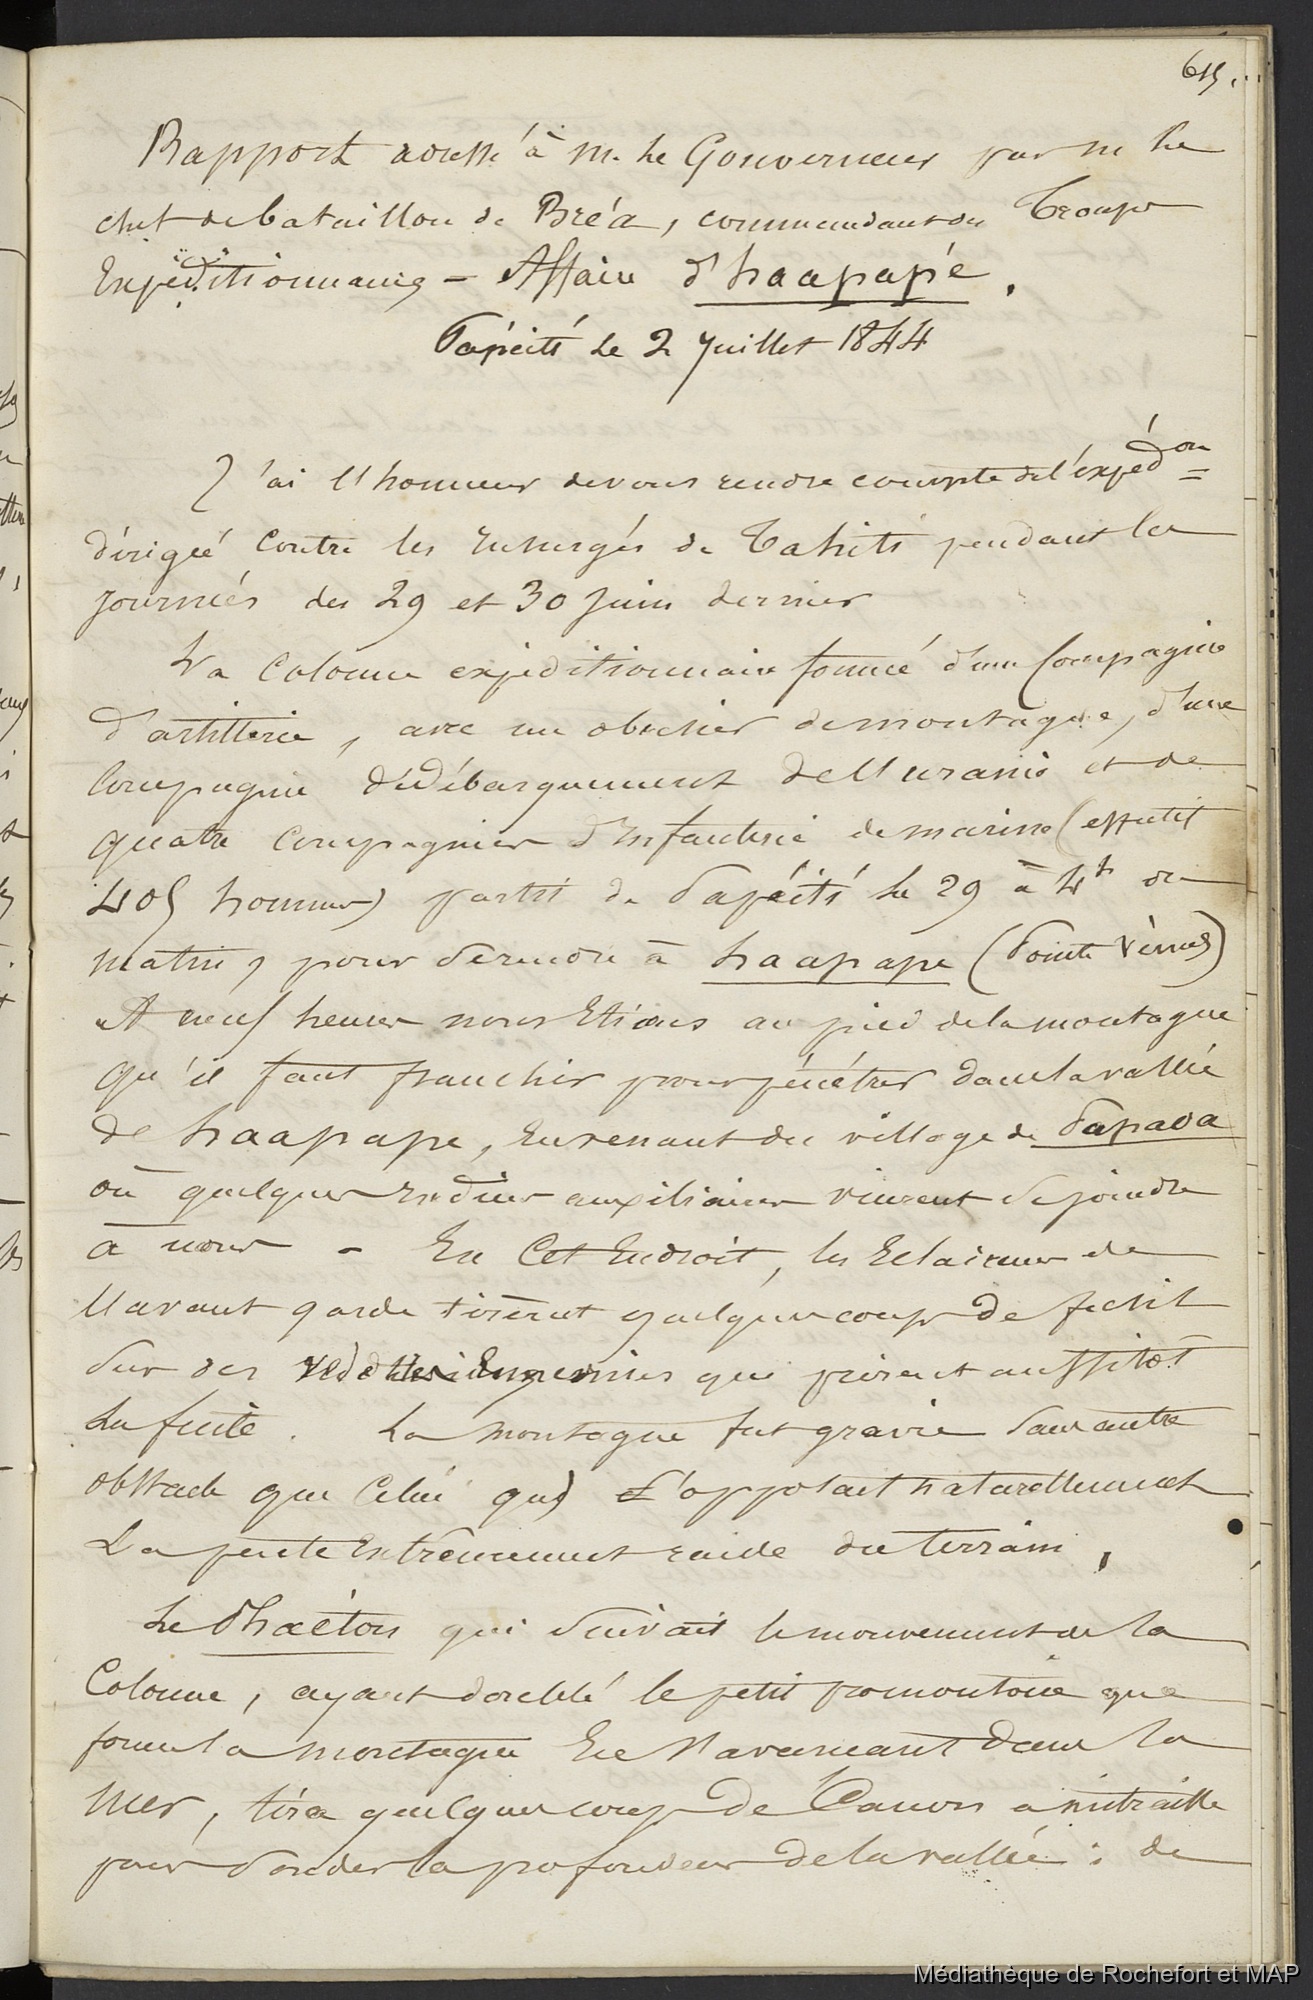 615.
Rapport adressé à M. le Gouverneur par M le
chef de bataillon de Bréa, commandant des Troupes
Expéditionnaires – Affaire d'haapapé.
Papéiti le 2 Juillet 1844
J'ai l'honneur de vous rendre compte de l'expédon
dirigée contre les Insurgés de Tahiti pendant les
journées des 29 et 30 Juin dernier
La Colonne expéditionnaire formée d'une Compagnie
d'artillerie, avec un obusier de montagne, d'une
Compagnie de débarquement de l'uranie et de
quatre Compagnies d'Infanterie de marine (effectif
405 hommes) partit de Papéiti le 29 à 4h du
matin, pour se rendre à haapape (Pointe Vénus)
A neuf heures nous Etions au pied de la montagne
qu'il faut franchir pour pénétrer dans la vallée
de haapape, en venant du village de Papaoa
où quelques Indiens auxiliaires vinrent se joindre
à nous – En Cet Endroit, les Eclaireurs de
l'avant garde tirèrent quelques coups de fusil
sur des vedettes Ennemies qui prirent aussitôt
la fuite. La montagne fut gravie sans autre
obstacle que Celui qu'y opposait naturellement
La pente Extrêmement raide du terrain,
Le Phaéton qui suivait le mouvement de la
Colonne, ayant doublé le petit promontoire que
forme la montagne En s'avançant dans la
Mer, tira quelques coups de Canon à mitraille
pour sonder la profondeur de la vallée : de
Médiathèque de Rochefort et MAP